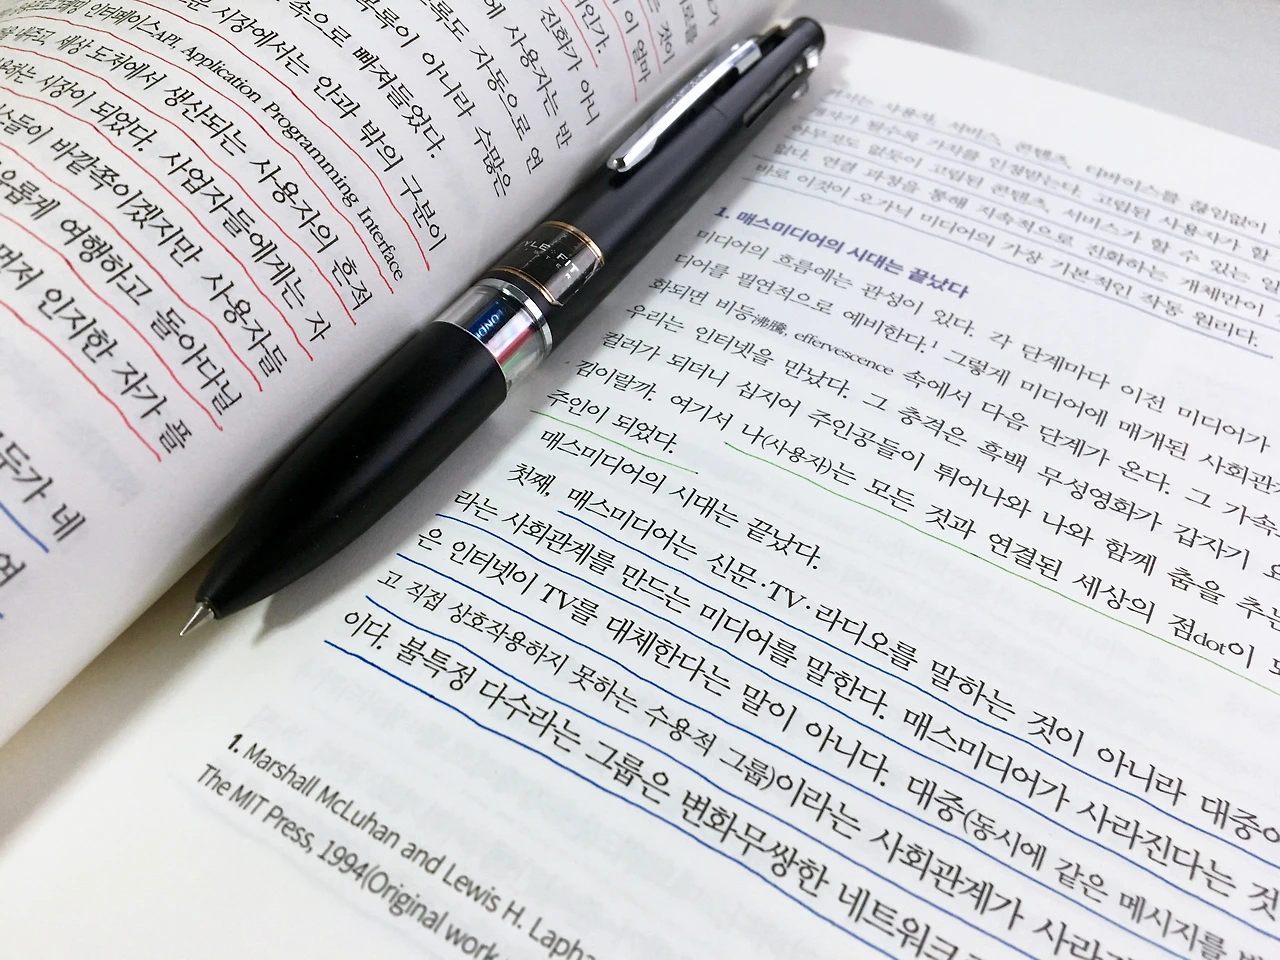 인터페이스API, Application Programming Interface
시장에서는 안과 밖의 구분이
속으로 빠져들었다.
아니라 수많은
자동으로 연
에 사용자는 반
진화가 아니
인가.
이 얼마
는 것이
세상 도처에서 생산되는 사용자의 흔적
하는 시장이 되었다. 사업자들에게는 자
스들이 바깥쪽이겠지만 사용자들
롭게 여행하고 돌아다닐
먼저 인지한 자가 플
두가 네
여
사용자, 서비스, 콘텐츠, 디바이스를 끊임없이
가 될수록 가치를 인정받는다. 고립된 사용자가 할
아무것도 없듯이 고립된 콘텐츠, 서비스가 할 수 있는 일
없다. 연결 과정을 통해 지속적으로 진화하는 개체만이
바로 이것이 오가닉 미디어의 가장 기본적인 작동 원리다.
1. 매스미디어의 시대는 끝났다
미디어의 흐름에는 관성이 있다. 각 단계마다 이전 미디어가
디어를 필연적으로 예비한다.1 그렇게 미디어에 매개된 사회관
화되면 비등沸騰, effervescence 속에서 다음 단계가 온다. 그 가속
우리는 인터넷을 만났다. 그 충격은 흑백 무성영화가 갑자기
컬러가 되더니 심지어 주인공들이 튀어나와 나와 함께 춤을 추는
낌이랄까. 여기서 나(사용자)는 모든 것과 연결된 세상의 점dot이
주인이 되었다.
매스미디어의 시대는 끝났다.
첫째, 매스미디어는 신문·TV·라디오를 말하는 것이 아니라 대중이
라는 사회관계를 만드는 미디어를 말한다. 매스미디어가 사라진다는 것
은 인터넷이 TV를 대체한다는 말이 아니다. 대중(동시에 같은 메시지를
고 직접 상호작용하지 못하는 수용적 그룹)이라는 사회관계가
이다. 불특정 다수라는 그룹은 변화무쌍한 네트워크
1. Marshall McLuhan and Lewis H. Lapha
The MIT Press, 1994(Original work